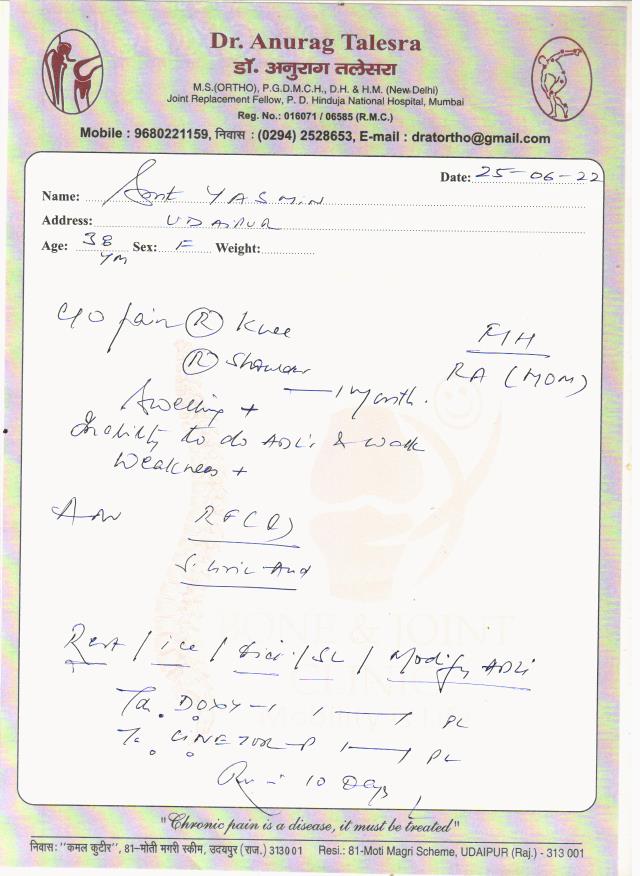 Dr. Anurag Talesra
डॉ. अनुराग तलेसरा
M.S.(ORTHO), P.G.D.M.C.H., D.H. & H.M. (New Delhi)
Joint Replacement Fellow, P. D. Hinduja National Hospital, Mumbai
Reg. No.: 016071 / 06585 (R.M.C.)
Mobile : 9680221159, निवास : (0294) 2528653, E-mail : dratortho@gmail.com
Date: 25-06-22
Name: Smt YASMIN
Address: UDAIPUR
Age: 38 Sex: F Weight:
C/O pain (R) Knee
(R) Shoulder
1 month.
FH
RA (MOM)
Swelling +
Inability to do ADLs & walk
Weakness +
Adv RF(Q)
S. Uric Acid
Rest / ice / / SL / Modify ADLs
DOXY-1 1
1
10 Days
BONE & JOINT
"Chronic pain is a disease, it must be treated"
निवास: "कमल कुटीर", 81-मोती मगरी स्कीम, उदयपुर (राज.) 313001 Resi.: 81-Moti Magri Scheme, UDAIPUR (Raj.) - 313 001